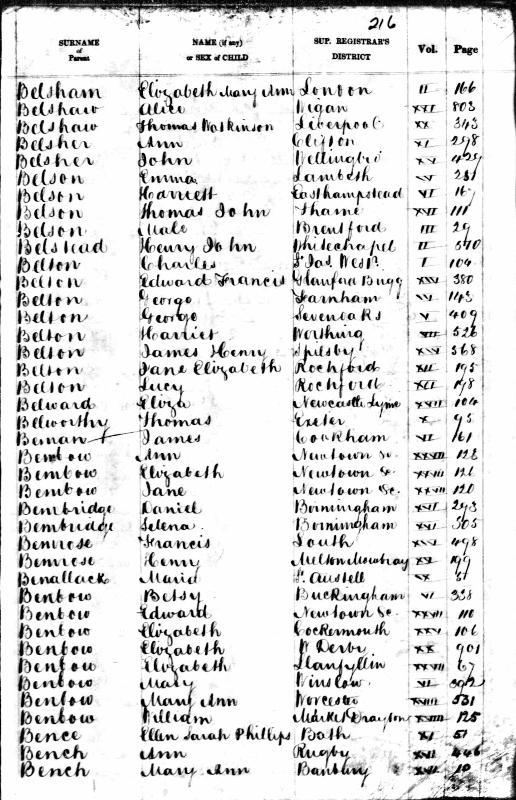 216
SURNAME of Parent NAME (if any) or SEX of CHILD SUP. REGISTRAR'S DISTRICT Vol. Page
Belsham Elizabeth Mary Ann London II 166
Belshaw Alice Wigan XXI 803
Belshaw Thomas Watkinson Liverpool XX 343
Belsher Ann Clifton XI 298
Belsher John Wellingbro XV 429
Belson Emma Lambeth IV 251
Belson Harriett Easthampstead VI 167
Belson Thomas John Thame XVI 111
Belson Male Brentford III 29
Belstead Henry John Whitechapel II 570
Belton Charles St Jas Westr. I 104
Belton Edward Francis Glanford Brigg XIV 380
Belton George Farnham IV 143
Belton George Sevenoaks V 409
Belton Harriet Worthing VII 526
Belton James Henry Spilsby XIV 568
Belton Jane Elizabeth Rochford XII 195
Belton Lucy Rochford XII 198
Belward Eliza Newcastle Lyme XVII 104
Bellworthy Thomas Exeter X 95
Beman James Cookham VI 161
Bembow Ann Newtown Sc. XXVII 128
Bembow Elizabeth Newtown Sc. XXVII 126
Bembow Jane Newtown Sc. XXVII 120
Bembridge Daniel Birmingham XVI 293
Bembridge Selena Birmingham XVI 305
Bemrose Francis Louth XIV 498
Bemrose Henry Melton Mowbray XV 199
Benallack Maria St. Austell IX 51
Benbow Betsy Buckingham VI 338
Benbow Edward Newtown Sc. XXVII 110
Benbow Elizabeth Cockermouth XXV 106
Benbow Elizabeth W Derby XX 901
Benbow Elizabeth Llanfyllin XXVII 67
Benbow Mary Winslow VI 392
Benbow Mary Ann Worcester XVIII 531
Benbow William Market Drayton XVIII 125
Bence Ellen Sarah Phillips Bath XI 51
Bench Ann Rugby XVI 446
Bench Mary Ann Banbury XVI 10